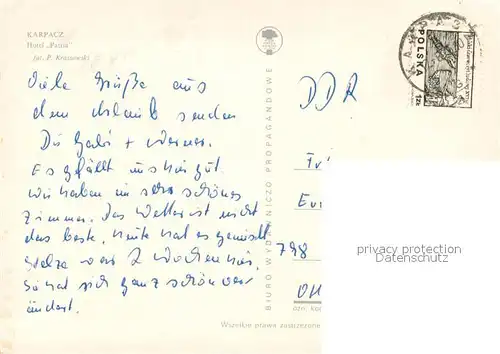 KARPACZ
Hotel „Patria"
fot. P. Krassowski
POLSKA
Viele Grüße aus
dem Urlaub senden
Dir Gabi + Werner.
Es gefällt uns hier gut.
Wir haben ein sehr schönes
Zimmer. Das Wetter ist nicht
das beste, heute hat es gemischt
wars 2 Wochen hier,
hat sich ganz schön ver
ändert.
BIURO WYDAWNICZO PROPAGANDOWE
DDR
798
privacy protection
Datenschutz
Wszelkie prawa zastrzeżone